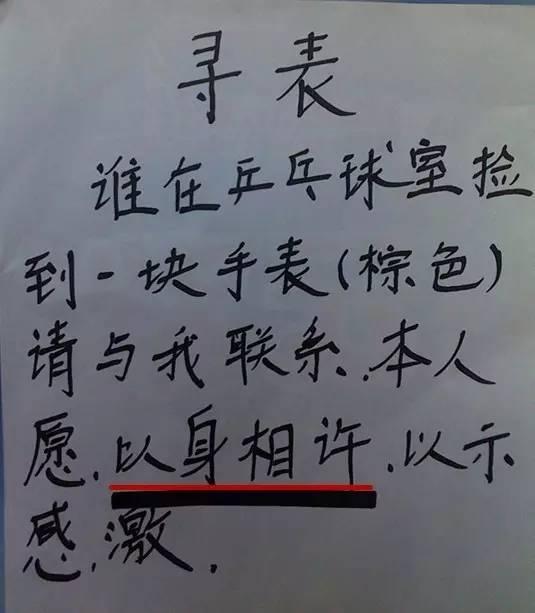 寻表
谁在乒乓球室捡
到一块手表(棕色)
请与我联系.本人
愿.以身相许.以示
感.激.